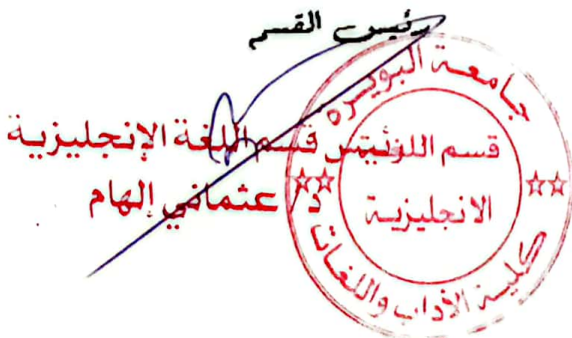 رئيس القسم
رئيس قسم اللغة الإنجليزية
د/ عثماني إلهام
جامعة البويرة
قسم اللغة
الانجليزية
كلية الآداب واللغات